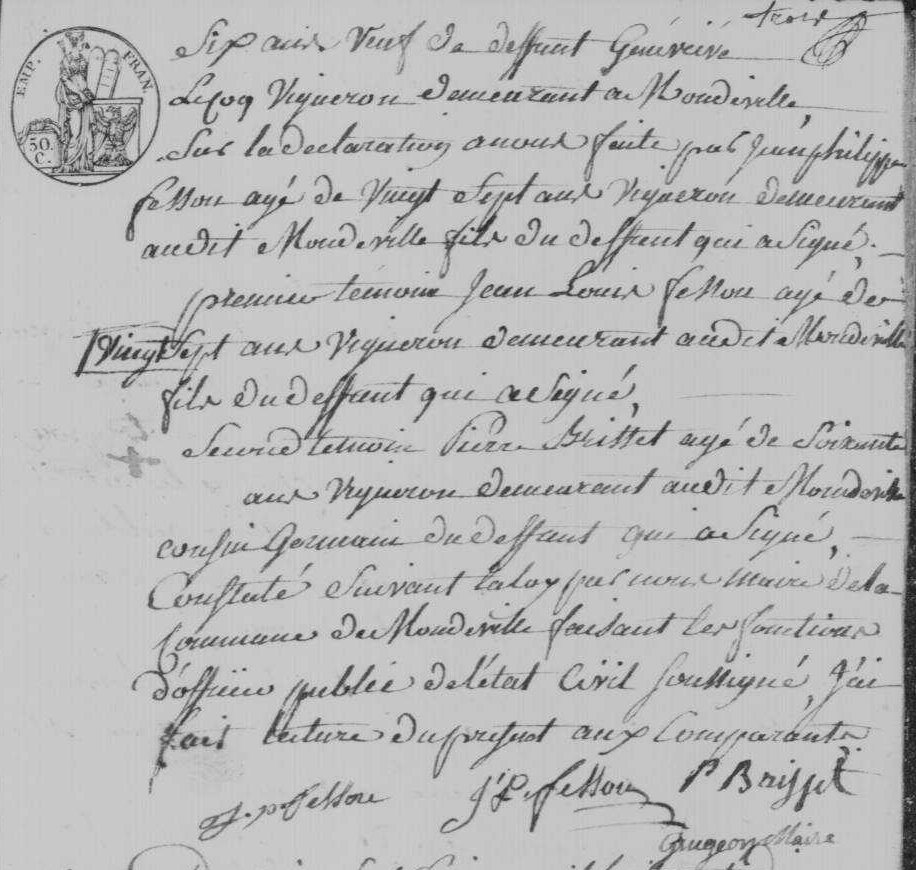 trois
EMP. FRAN.
50.
C.
Six ans Veuf de deffunt Généviéve
LeCoq Vigneron demeurant a Mondeville,
Sur la declaration anous faite par Jeanphilippe
fesson agé de Vingt Sept ans Vigneron demeurant
audit Mondeville fils du deffunt qui a Signé,
premier temoin Jean Louis fesson agé de
Vingt Sept ans Vigneron demeurant audit Mondeville
fils du deffunt qui a Signé,
Second temoin Pierre Brisset agé de Soixante
ans Vigneron demeurant audit Mondeville
cousin Germain du deffunt qui a Signé,
Constaté Suivant la loy par nous Maire dela
Commune de Mondeville faisant les fonctions
d'officier public de l'état Civil Soussigné, J'ai
fait lecture du present aux Comparants
j. p. fesson J L fesson P Brisset
Grugeon Maire